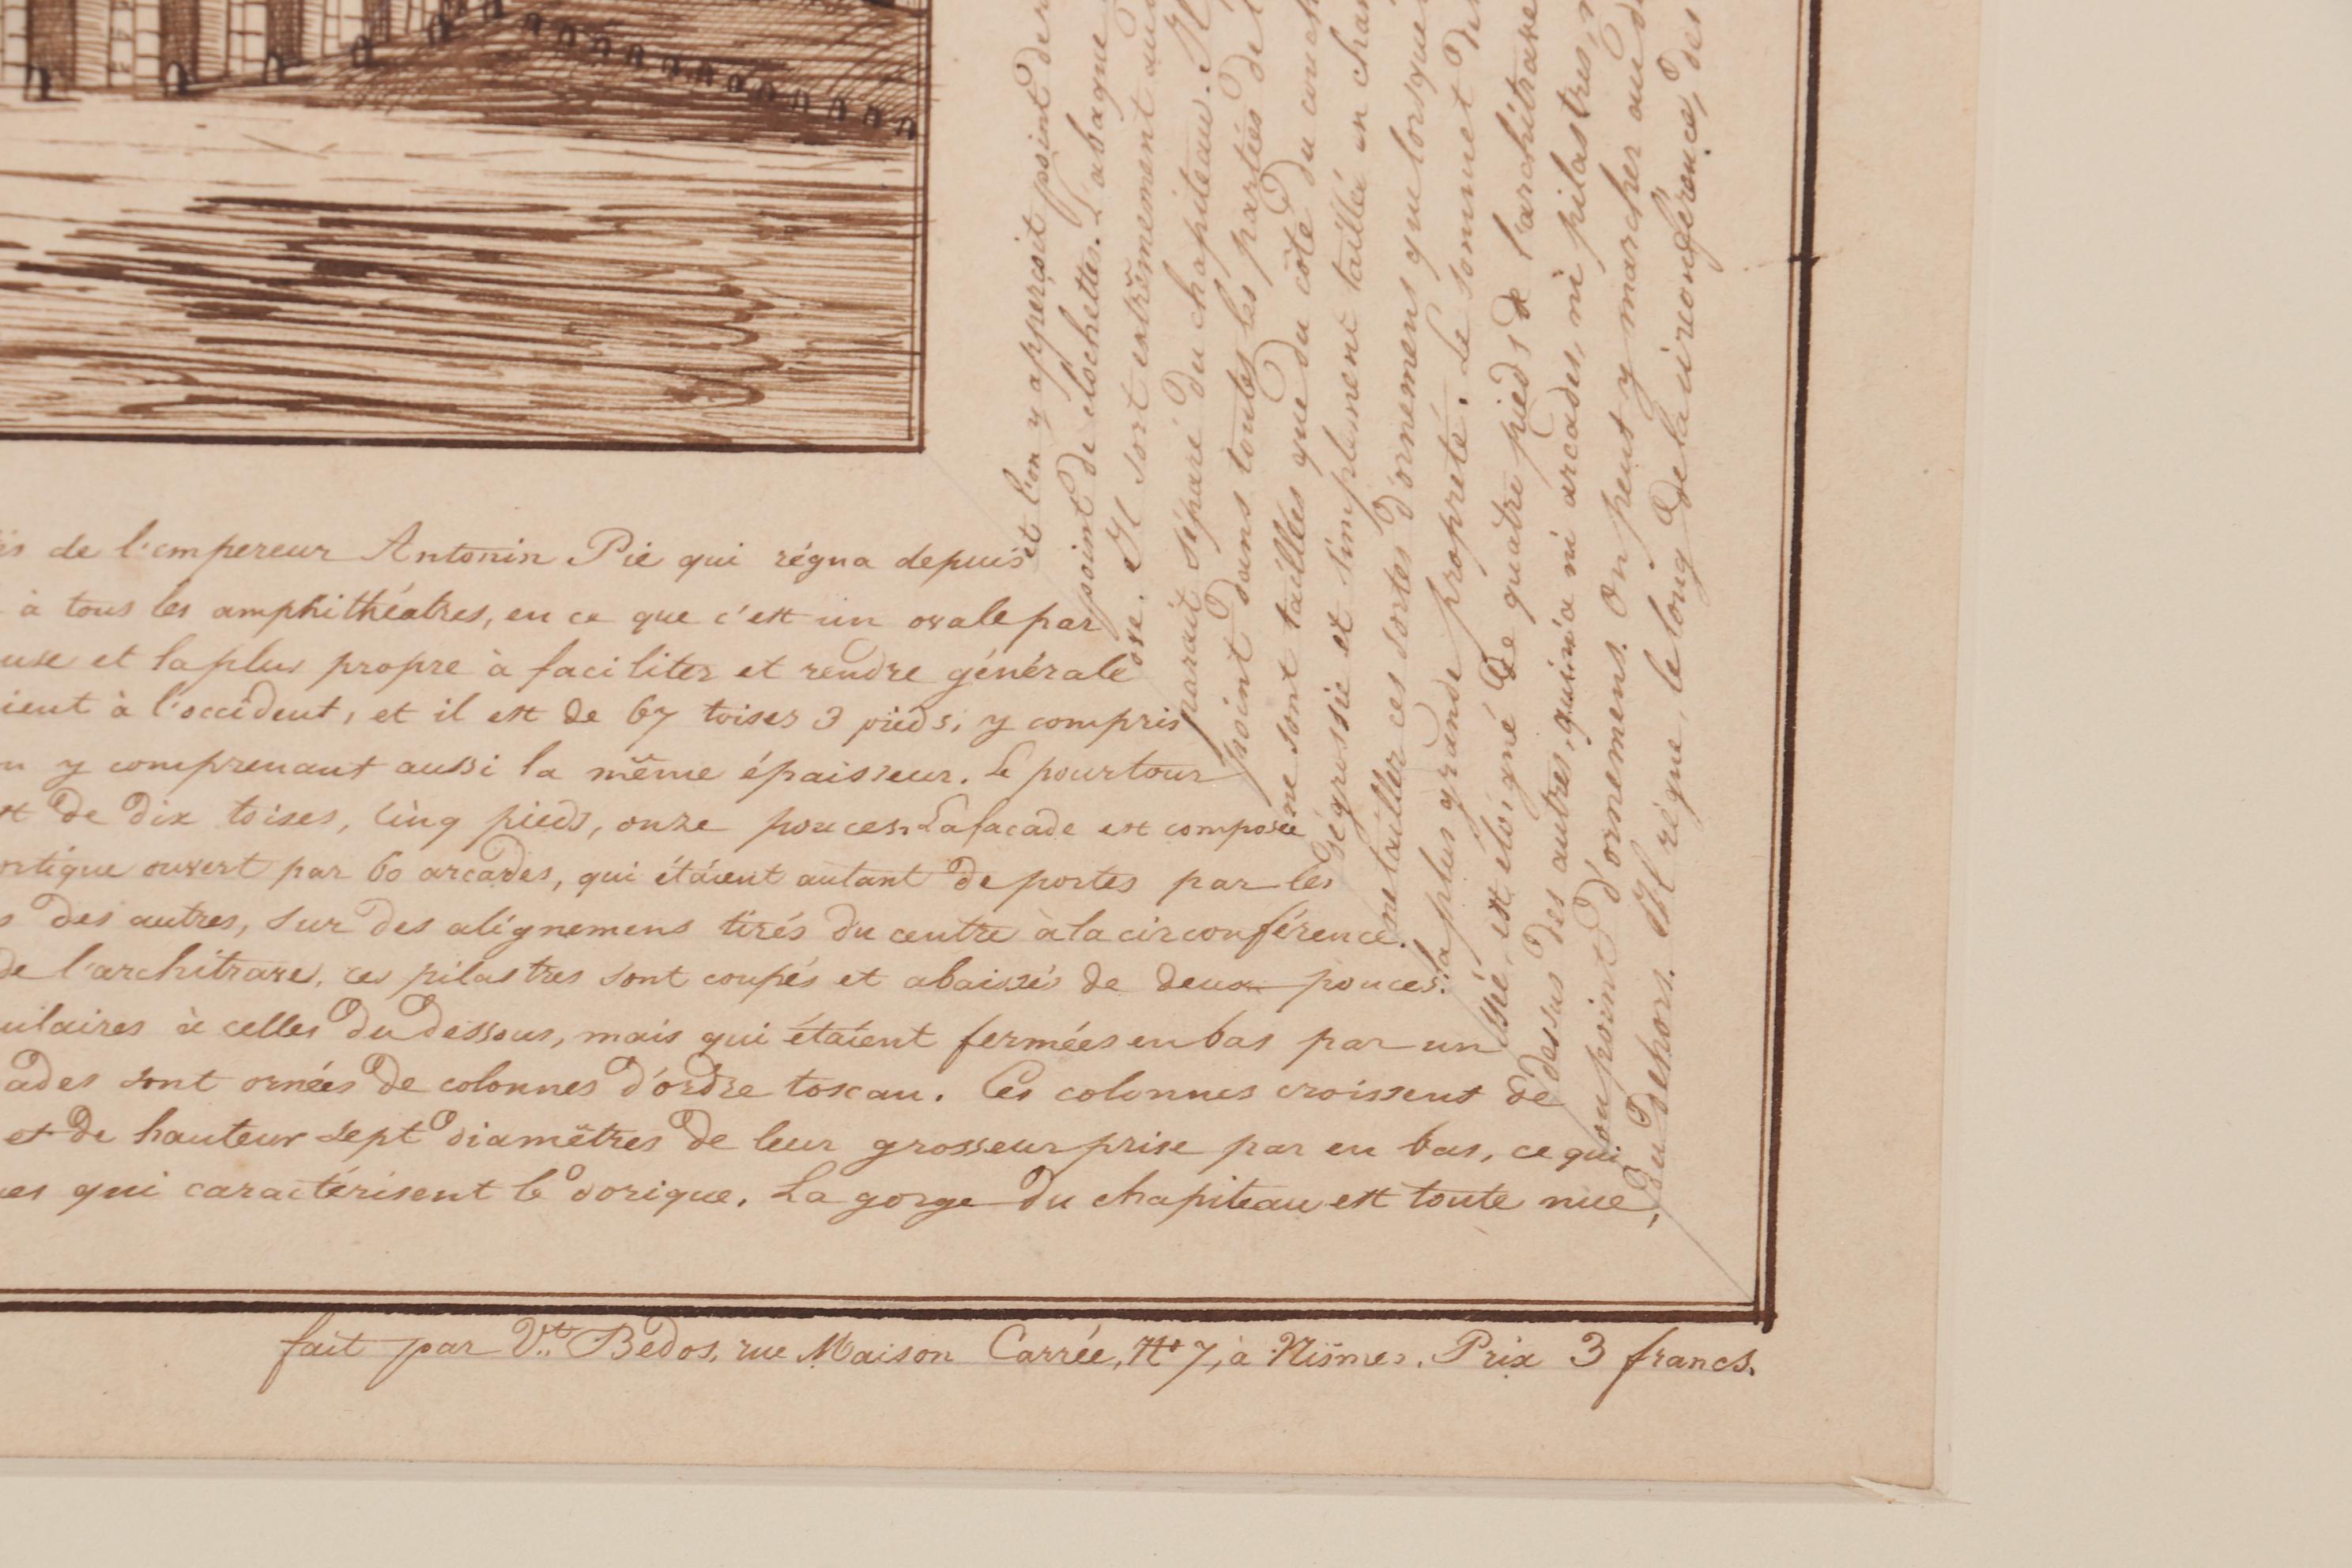 de l'empereur Antonin Pie qui régna depuis
à tous les amphithéatres, en ce que c'est un ovale par
use et la plus propre à faciliter et rendre générale
ient à l'occident, et il est de 67 toises 3 pieds, y compris
n y comprenant aussi la même épaisseur. Le pourtour
de dix toises, cinq pieds, onze pouces. La facade est composée
ortique ouvert par 60 arcades, qui étaient autant de portes par les
s des autres, sur des alignemens tirés du centre à la circonférence.
de l'architrave, ces pilastres sont coupés et abaissés de deux pouces.
ulaires à celles du dessous, mais qui étaient fermées en bas par un
ades sont ornées de colonnes d'ordre toscan. Ces colonnes croissent de
et de hauteur sept diamêtres de leur grosseur prise par en bas, ce qui
es qui caractérisent le dorique. La gorge du chapiteau est toute nue,
et l'on y apperçoit point de
point de clochettes. L'abaque
ose. Il sort extrêmement
parait séparé du chapiteau. Il
point dans toutes les parties de
ne sont taillées que du côté du couch
dégrossie et simplement taillée en chan
ne tailler ces sortes d'ornemens que lorsque
la plus grande propreté. Le sommet de
est éloigné de quatre pieds de l'architrave
dessus des autres, qui n'a ni arcades, ni pilastres,
ou point d'ornemens. On peut y marcher au de
du dehors. Il règne, le long de la circonférence, des
fait par Vt. Bedos, rue Maison Carrée, No 7, à Nismes. Prix 3 francs.